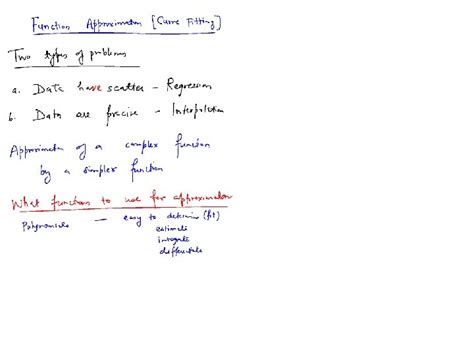 Function Approximation [Curve Fitting]
Two types of problems
a. Data have scatter - Regression
b. Data are precise - Interpolation
Approximation of a complex function
by a simpler function
What functions to use for approximation
Polynomials — easy to determine (fit)
estimate
integrate
differentiate